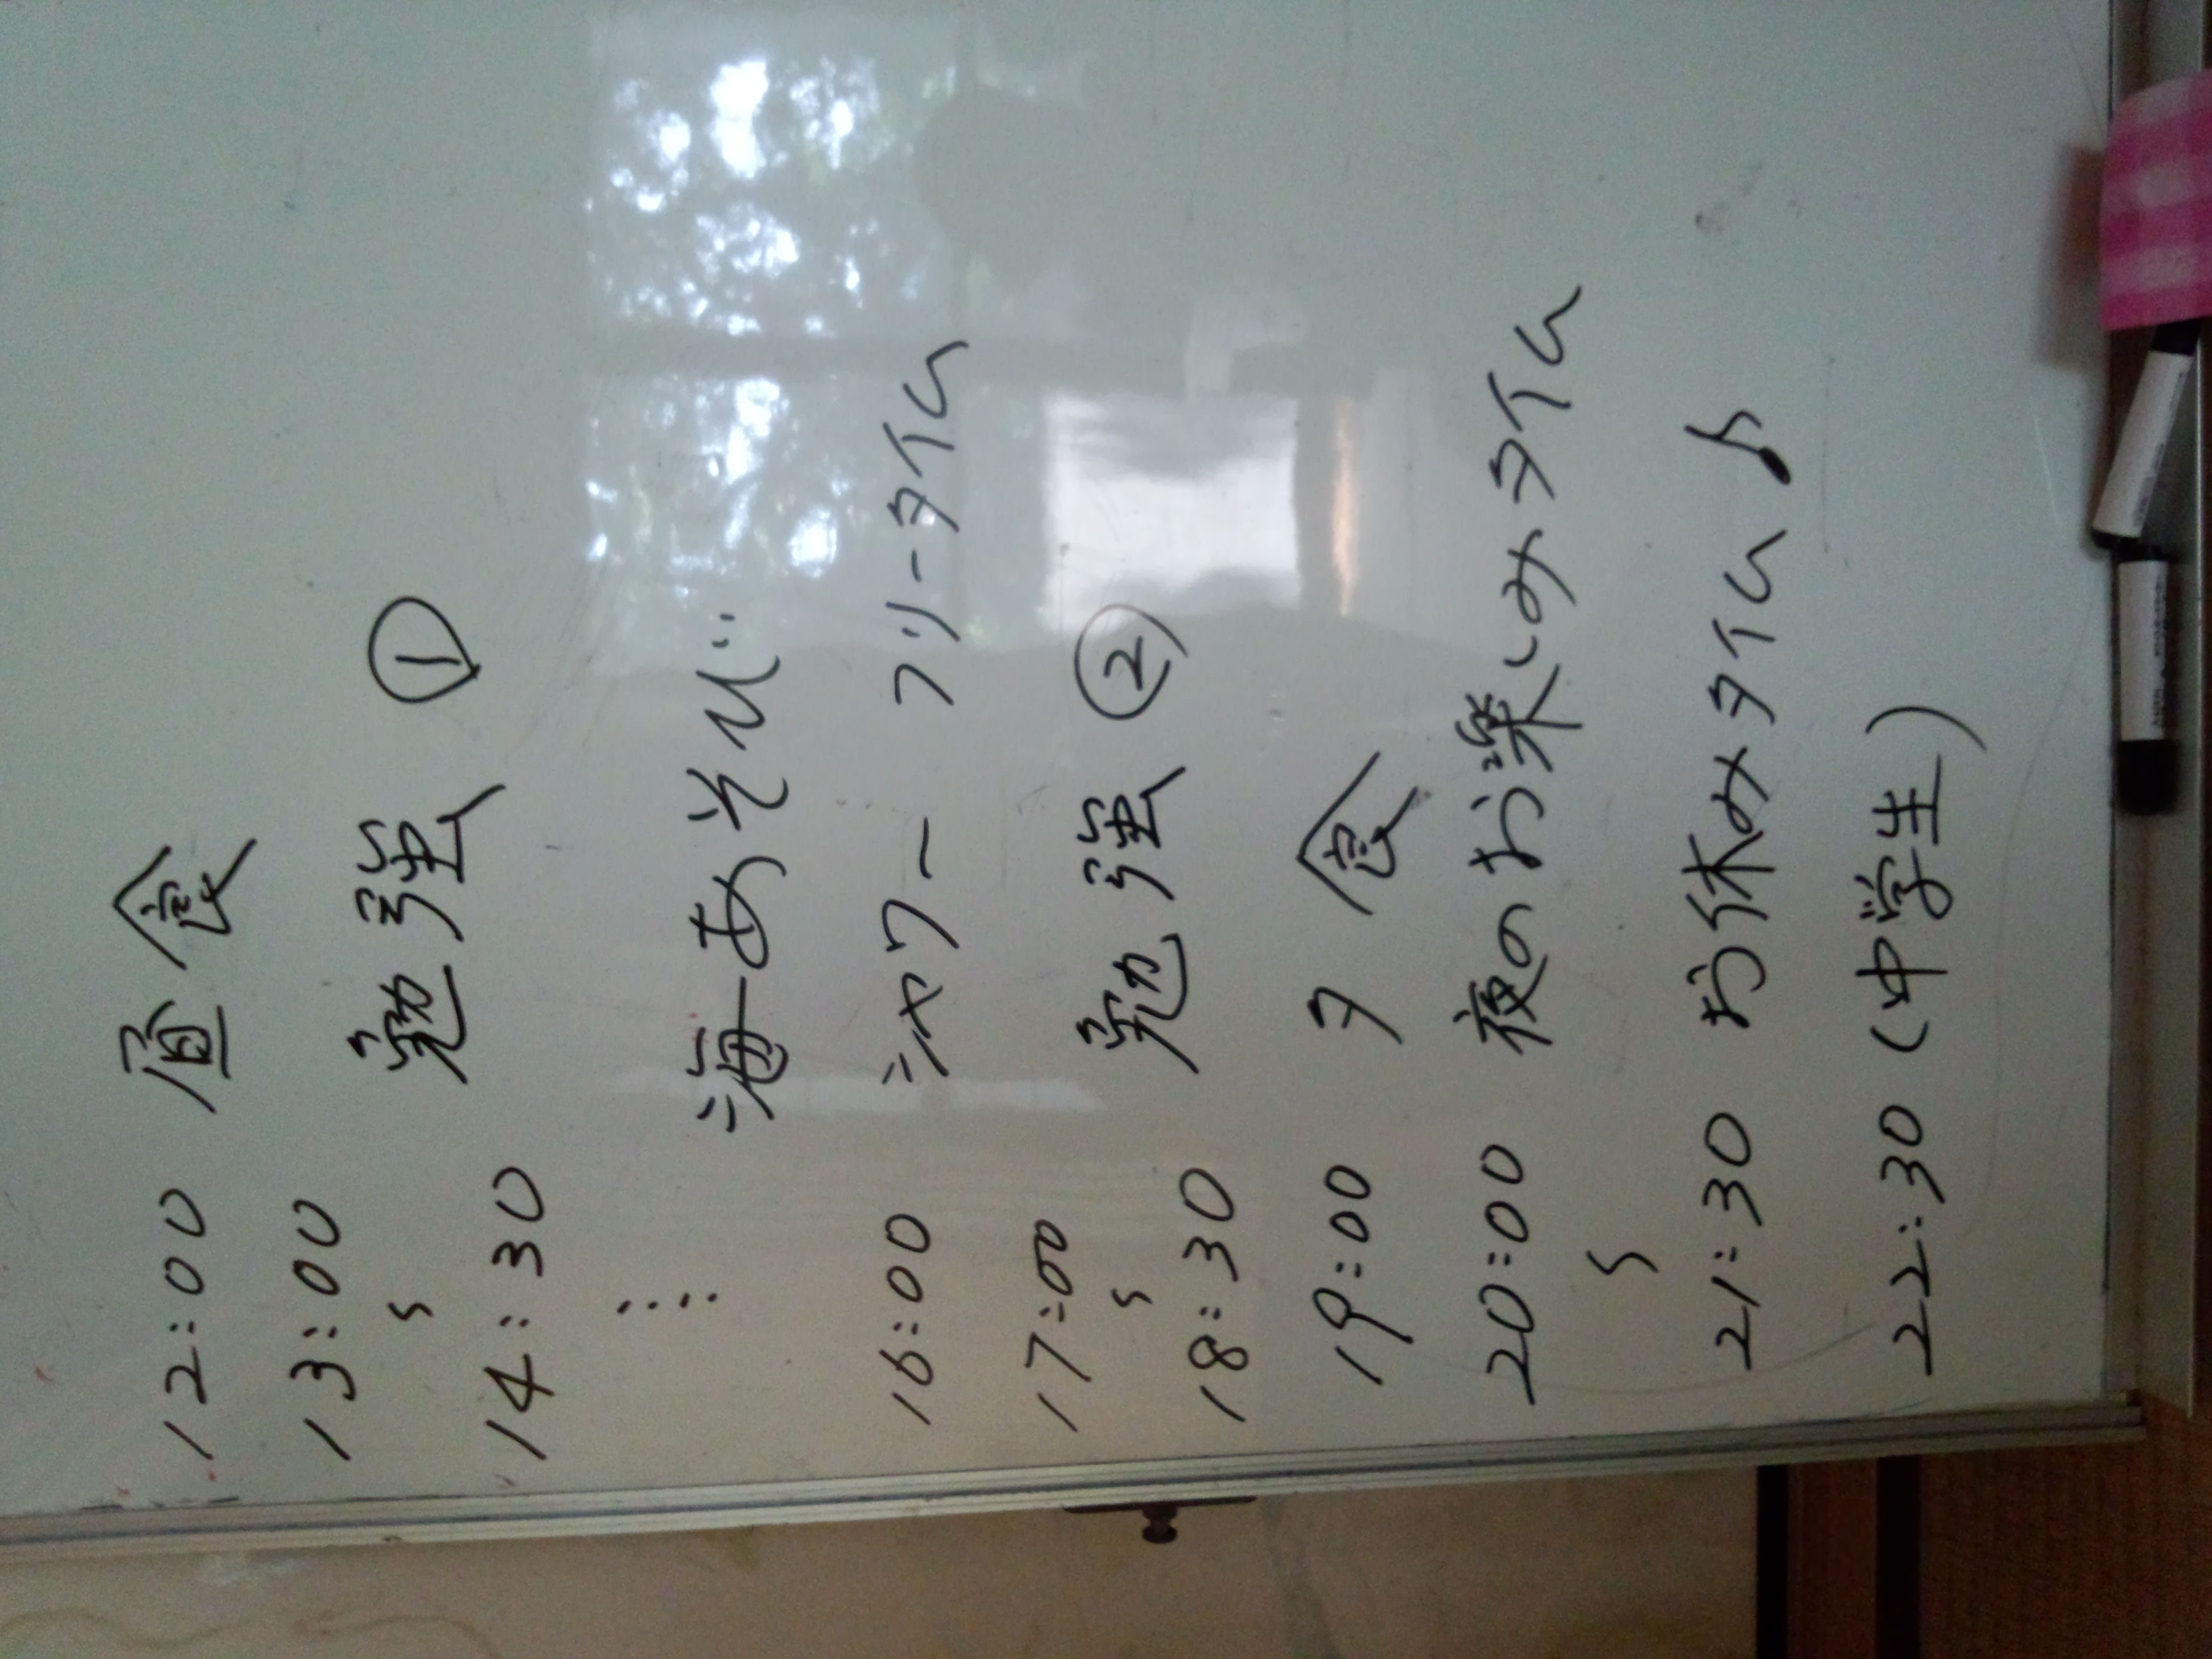 12:00 昼食
13:00
〜 勉強 ①
14:30
⋮ 海あそび
16:00 シャワー フリータイム
17:00
〜 勉強 ②
18:30
19:00 夕食
20:00 夜のお楽しみタイム
〜
21:30 お休みタイム♪
22:30 (中学生)